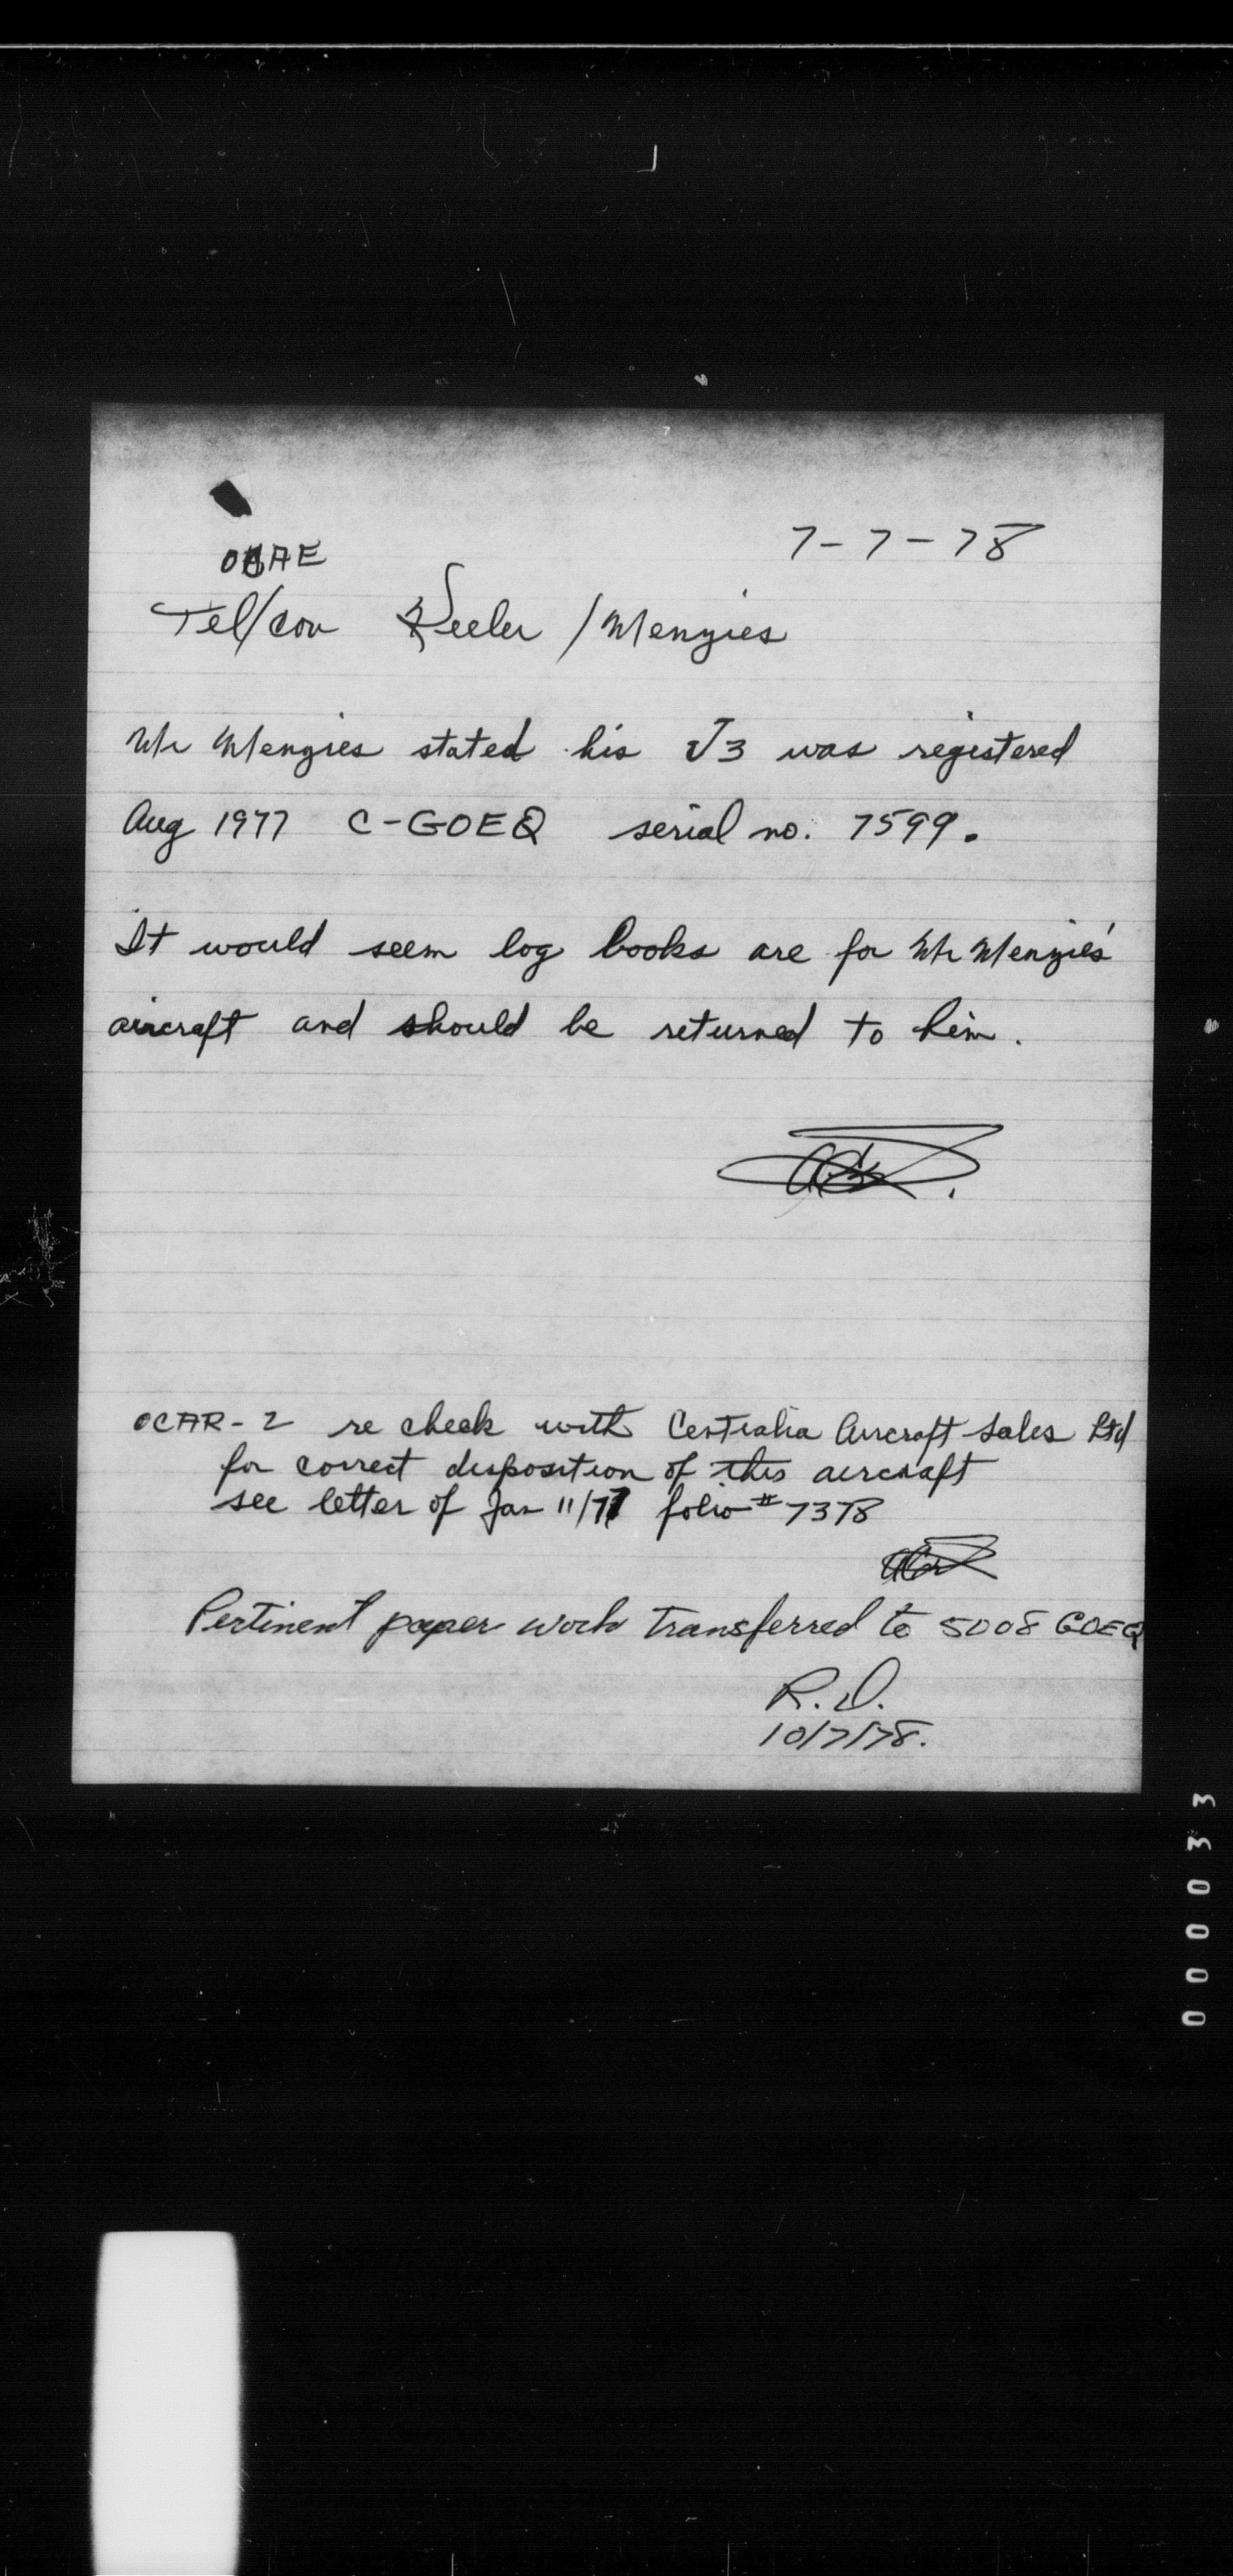 7-7-78
OCAE
Tel/con Keeler / Menzies
Mr Menzies stated his J3 was registered
Aug 1977 C-GOEQ serial no. 7599.
It would seem log books are for Mr Menzies'
aircraft and should be returned to him.
OCAR-2 re check with Centralia Aircraft Sales Ltd
for correct disposition of this aircraft
see letter of Jan 11/77 folio # 7378
Pertinent paper work transferred to 5008 GOEQ
R.D.
10/7/78.
000033